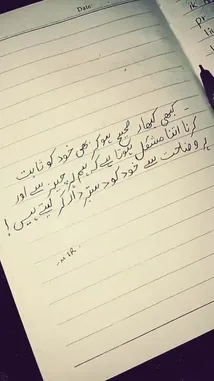 Date:
۔ کبھی کبھار صحیح ہو کر بھی خود کو ثابت
کرنا اتنا مشکل ہوتا ہے کہ ہم ہر چیز سے اور
ہر وضاحت سے خود کو دستبردار کر لیتے ہیں !